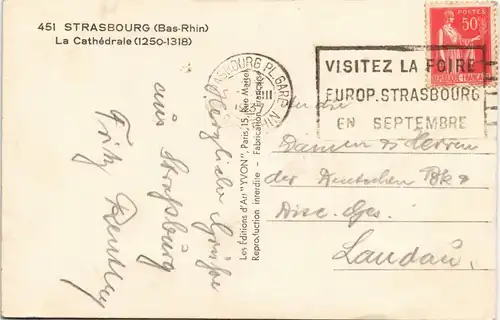 451 STRASBOURG (Bas-Rhin)
La Cathédrale (1250-1318)
Herzliche Grüße
aus Straßburg
Fritz
Les Editions d'Art "YVON", Paris, 15, Rue Martel
Reproduction interdite - Fabrication Française
STRASBOURG PL. GARE
POSTES
50c
VISITEZ LA FOIRE
EUROP. STRASBOURG
EN SEPTEMBRE
An die
Damen & Herren
der Deutschen Bk &
Disc. Ges.
Landau.